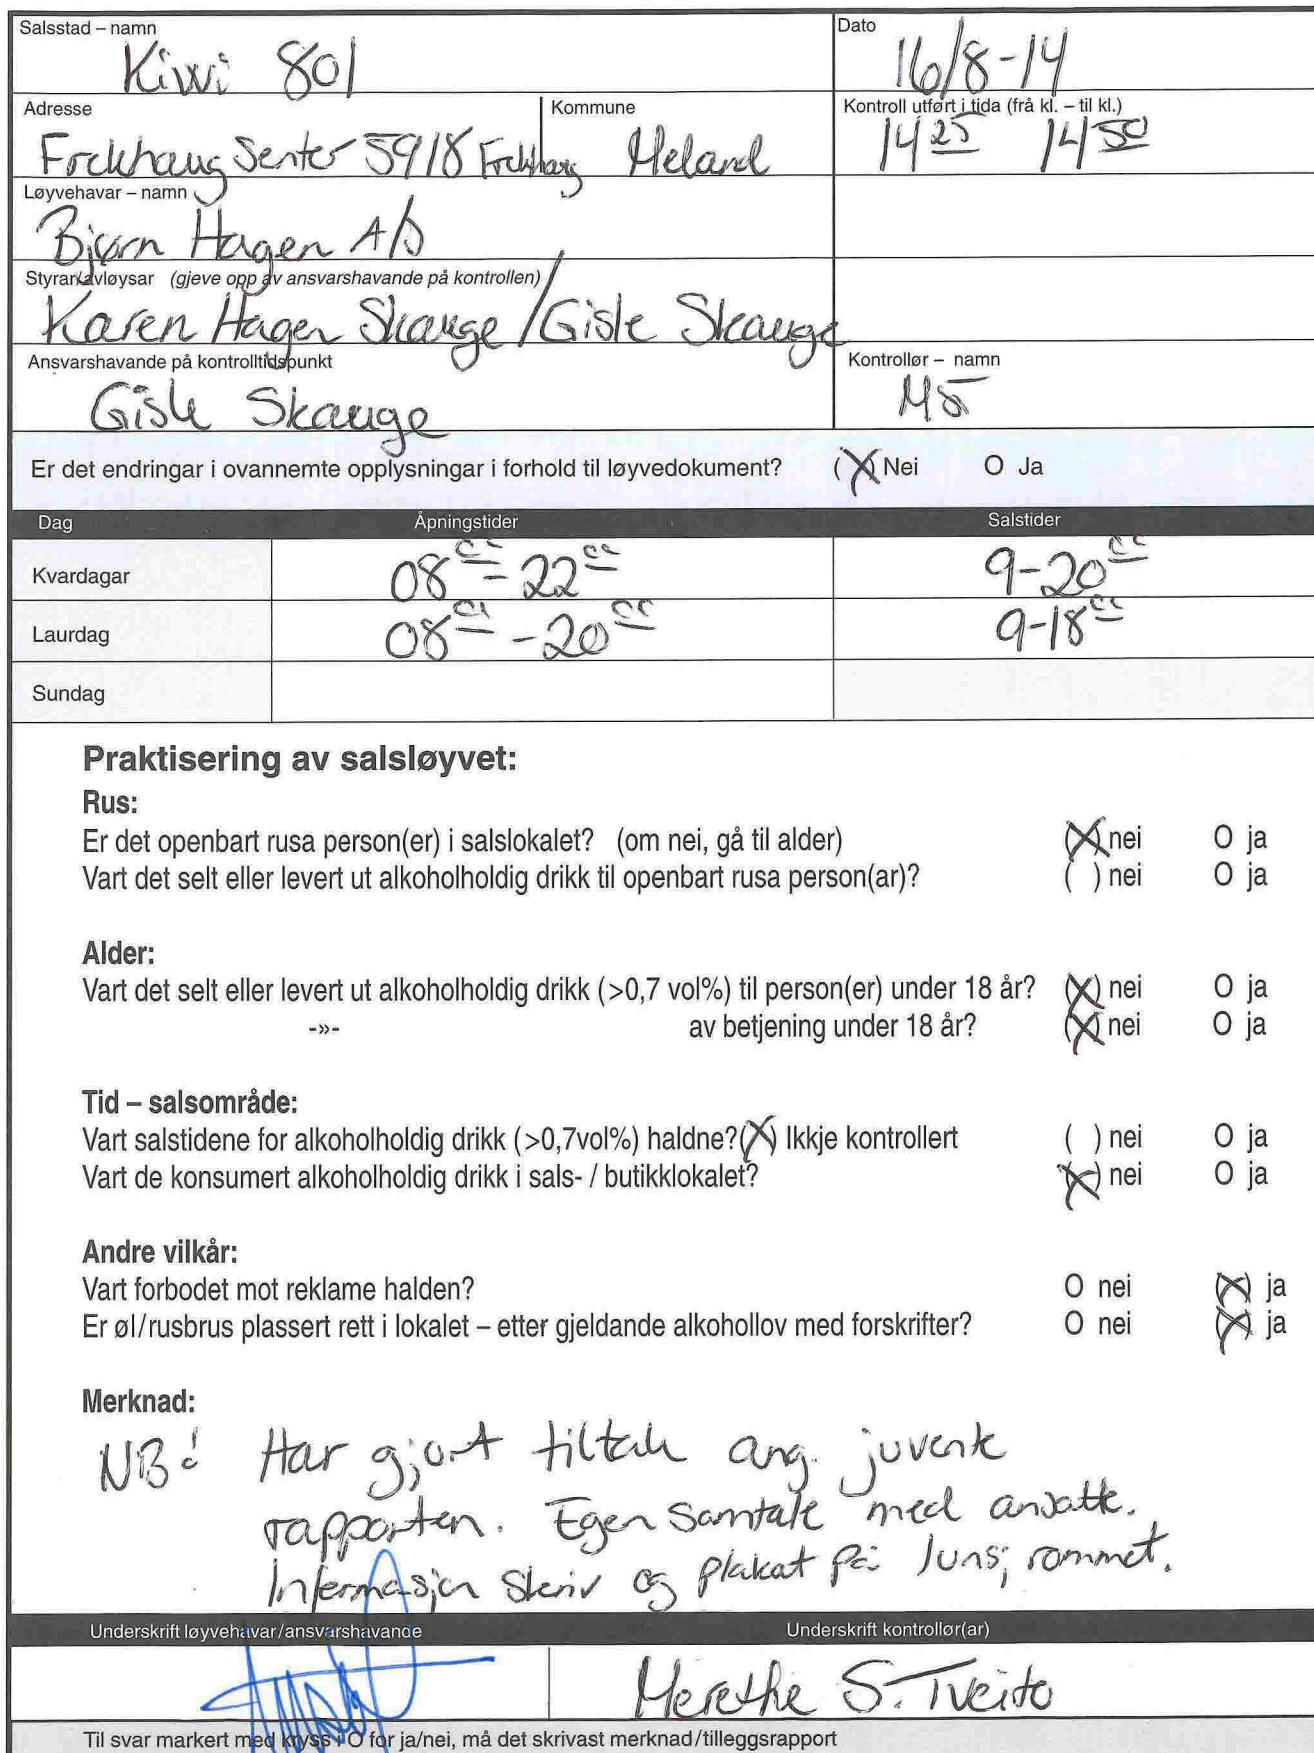 Salsstad – namn
Kiwi 801
Dato
16/8-14
Adresse
Frekhaug Senter 5918 Frekhaug
Kommune
Meland
Kontroll utført i tida (frå kl. – til kl.)
14 25 14 50
Løyvehavar – namn
Bjørn Hagen A/S
Styrar/avløysar (gjeve opp av ansvarshavande på kontrollen)
Karen Hagen Skauge / Gisle Skauge
Ansvarshavande på kontrolltidspunkt
Gisle Skauge
Kontrollør – namn
Er det endringar i ovannemte opplysningar i forhold til løyvedokument? (X) Nei O Ja
Dag Åpningstider Salstider
Kvardagar 08 00 - 22 00 9-20 00
Laurdag 08 00 - 20 00 9-18 00
Sundag
Praktisering av salsløyvet:
Rus:
Er det openbart rusa person(er) i salslokalet? (om nei, gå til alder) (X) nei O ja
Vart det selt eller levert ut alkoholholdig drikk til openbart rusa person(ar)? ( ) nei O ja
Alder:
Vart det selt eller levert ut alkoholholdig drikk (>0,7 vol%) til person(er) under 18 år? (X) nei O ja
-»- av betjening under 18 år? (X) nei O ja
Tid – salsområde:
Vart salstidene for alkoholholdig drikk (>0,7vol%) haldne? (X) Ikkje kontrollert ( ) nei O ja
Vart de konsumert alkoholholdig drikk i sals- / butikklokalet? (X) nei O ja
Andre vilkår:
Vart forbodet mot reklame halden? O nei (X) ja
Er øl/rusbrus plassert rett i lokalet – etter gjeldande alkohollov med forskrifter? O nei (X) ja
Merknad:
NB! Har gjort tiltak ang. juvente
rapporten. Egen samtale med ansatte.
Informasjon skriv og plakat på lunsj rommet.
Underskrift løyvehavar/ansvarshavande Underskrift kontrollør(ar)
Merethe S. Tveito
Til svar markert med kryss i O for ja/nei, må det skrivast merknad/tilleggsrapport